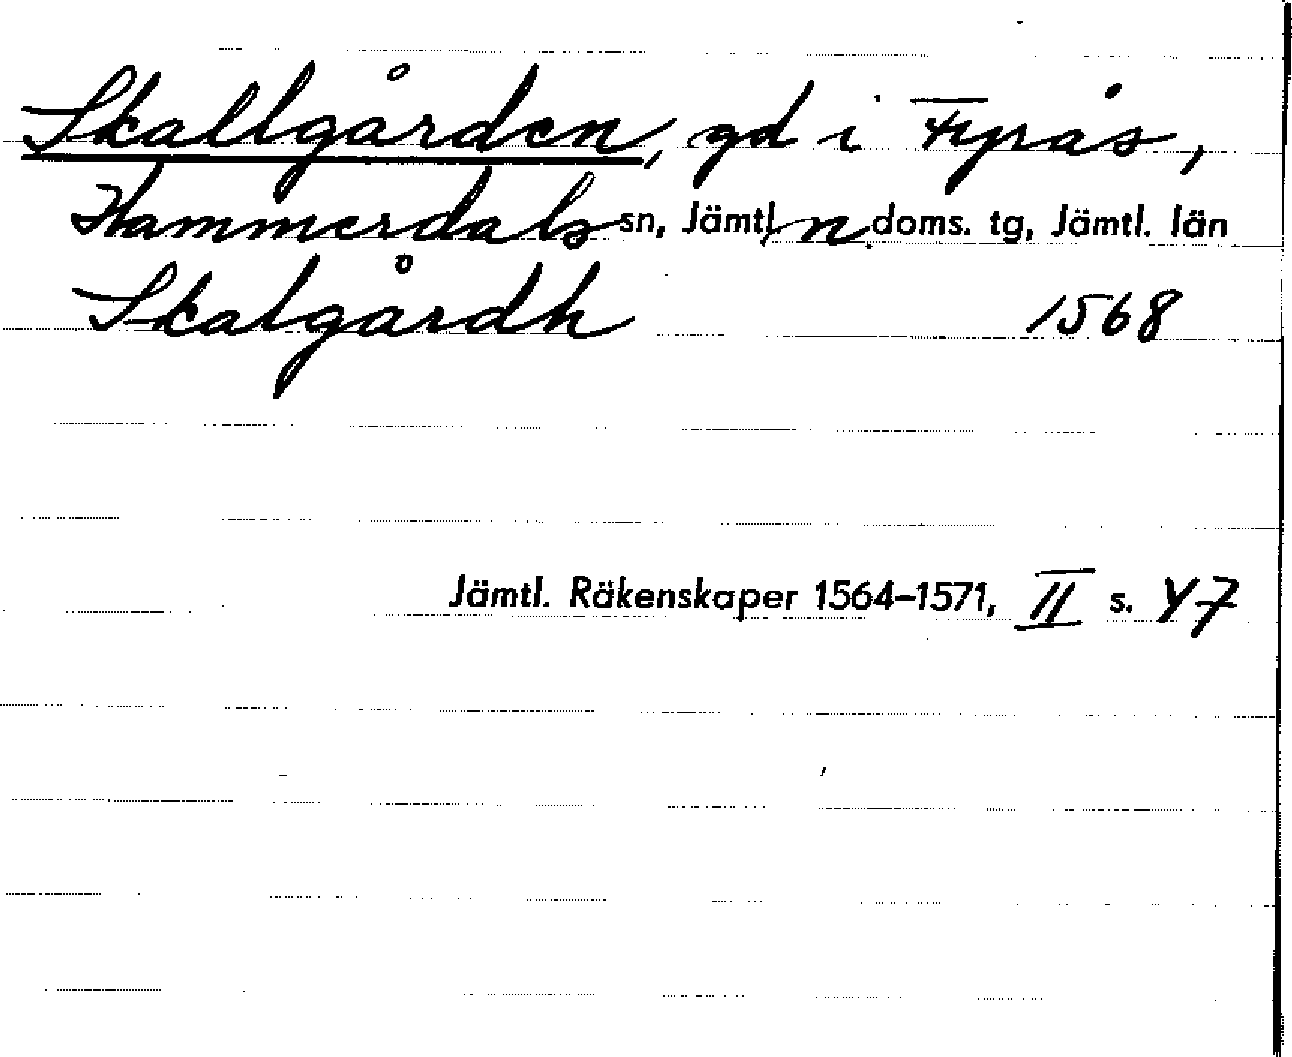 Skallgården, gd i Fyrås,
Hammerdals sn, Jämtl. n. doms. tg, Jämtl. län
Skalgårdh 1568
Jämtl. Räkenskaper 1564–1571, II s. 47